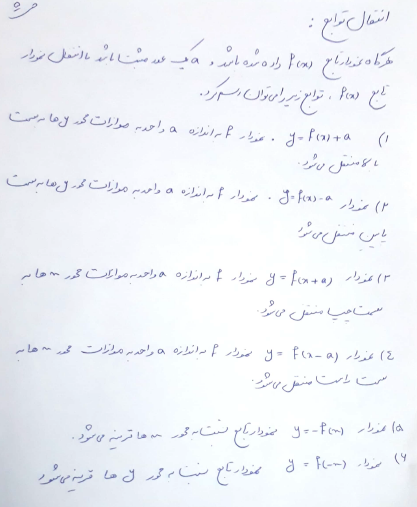 انتقال توابع :
هرگاه نمودار تابع f(x) داده شده باشد و a یک عدد مثبت باشد با انتقال نمودار
تابع f(x) ، توابع زیر را می‌توان رسم کرد.
۱) y = f(x)+a . نمودار f به اندازه a واحد به موازات محور y ها به سمت
بالا منتقل می‌شود.
۲) نمودار y = f(x)-a . نمودار f به اندازه a واحد به موازات محور y ها به سمت
پایین منتقل می‌شود
۳) نمودار y = f(x+a) نمودار f به اندازه a واحد به موازات محور x ها به
سمت چپ منتقل می‌شود.
۴) نمودار y = f(x-a) نمودار f به اندازه a واحد به موازات محور x ها به
سمت راست منتقل می‌شود.
۵) نمودار y = -f(x) نمودار تابع نسبت به محور x ها قرینه می‌شود.
۶) نمودار y = f(-x) نمودار تابع نسبت به محور y ها قرینه می‌شود